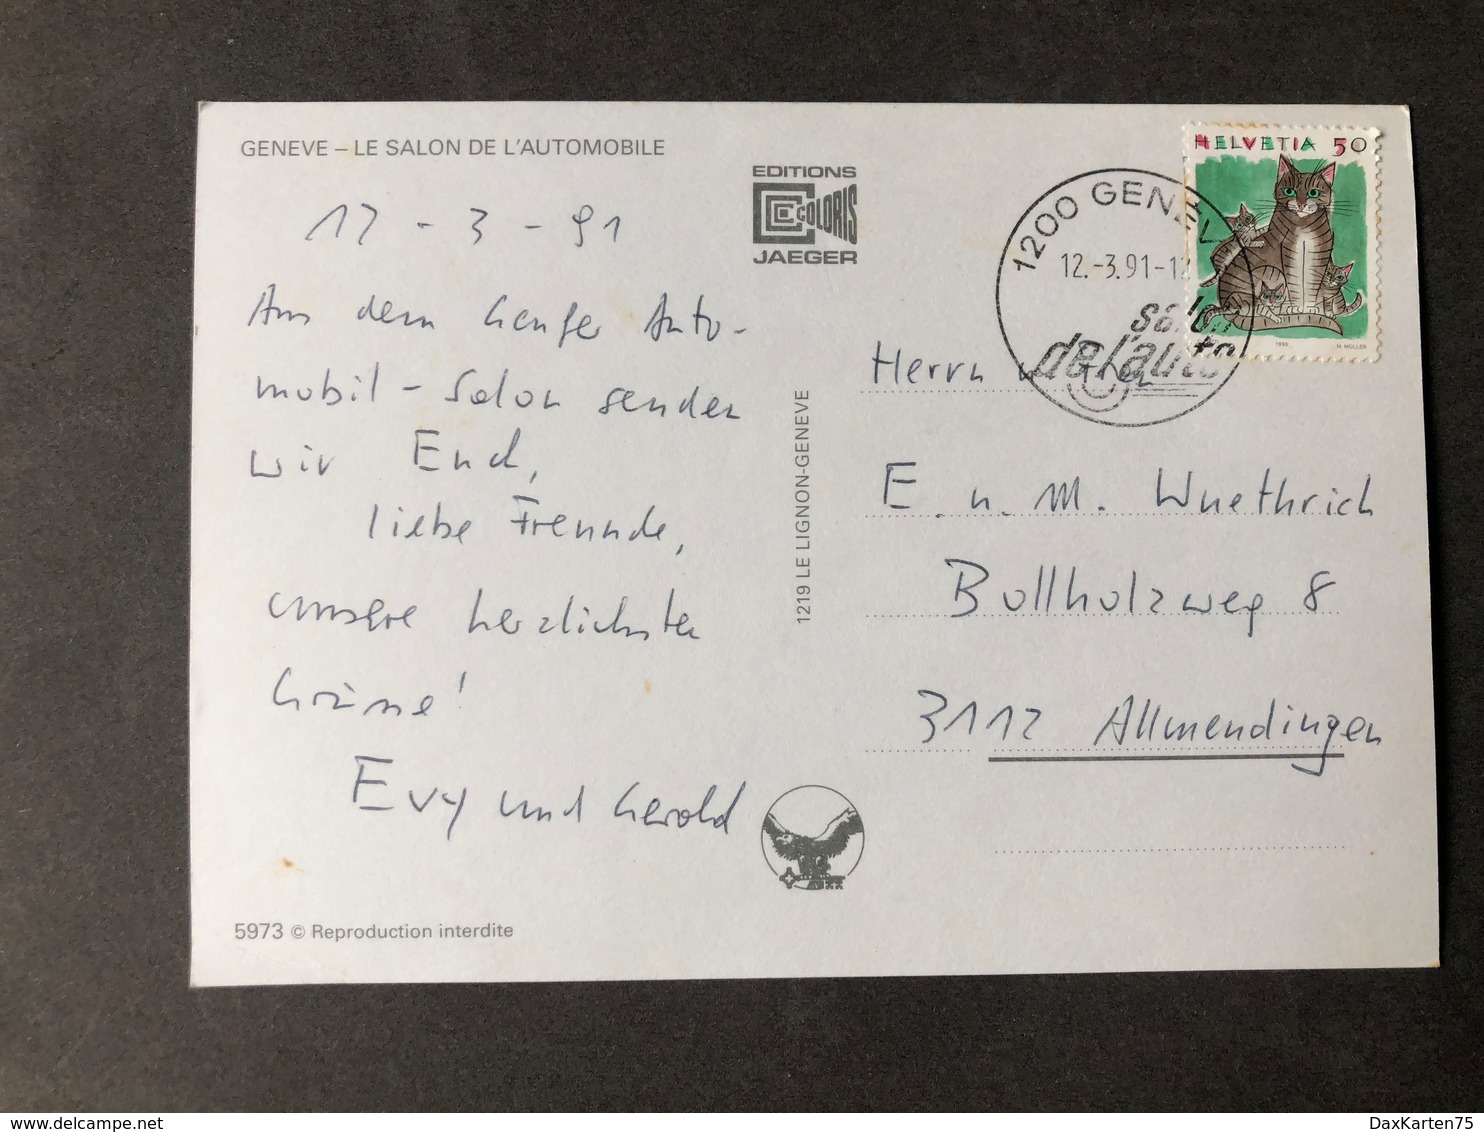 GENEVE – LE SALON DE L'AUTOMOBILE
12 - 3 - 91
Aus dem Genfer Auto-
mobil - Salon senden
wir Euch,
liebe Freunde,
unsere herzlichsten
Grüsse!
Evy und Gerold
5973 © Reproduction interdite
EDITIONS
COLORIS
JAEGER
1219 LE LIGNON-GENEVE
HELVETIA 50
1990 M. MÜLLER
1200 GENEV
12.-3.91-1
salon
de l'auto
Herrn u. Frau
E. u. M. Wuethrich
Bollholzweg 8
3112 Allmendingen
DaxKarten75